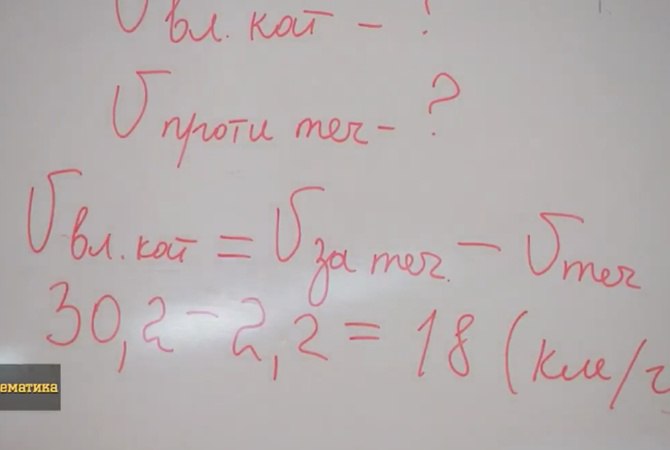 Vвл. кат - ?
Vпроти теч - ?
Vвл. кат = Vза теч. - Vтеч
30,2 - 2,2 = 18 (км/г
ематика